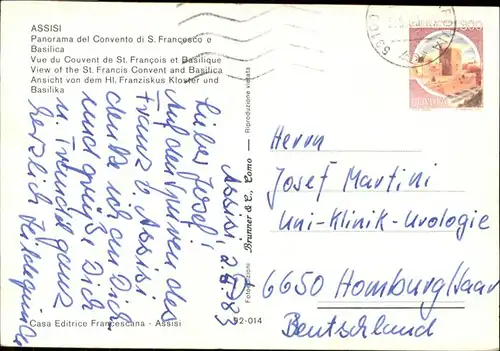 ASSISI
Panorama del Convento di S. Francesco e
Basilica
Vue du Couvent de St. François et Basilique
View of the St. Francis Convent and Basilica
Ansicht von dem Hl. Franziskus Kloster und
Basilika
Assisi, 2.8.83
Lieber Josef!
Auf den Spuren des
Franz v. Assisi
denke ich an Dich
und grüße Dich
u. ganz
herzlich
Fotoedizioni Brunner & C., Como — Riproduzione vietata
Casa Editrice Francescana - Assisi
92-014
Herrn
Josef Martini
Uni-Klinik-Urologie
6650 Homburg/Saar
Deutschland